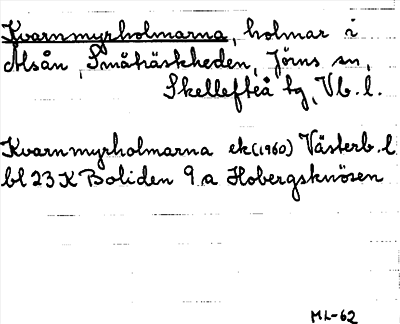 Kvarnmyrholmarna, holmar i
Alsån, Småträskheden, Jörns sn,
Skellefteå tg, Vb. l.
Kvarnmyrholmarna ek(1960) Västerb. l
bl 23 K Boliden 9 a Hobergsknösen
ML-62